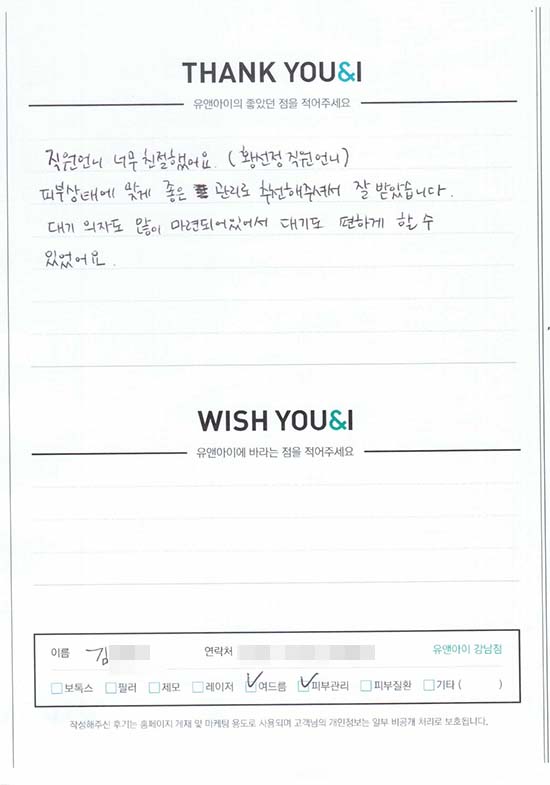 THANK YOU&I
유앤아이의 좋았던 점을 적어주세요
직원언니 너무 친절했어요. (황선정 직원언니)
피부상태에 맞게 좋은 관리로 추천해주셔서 잘 받았습니다.
대기 의자도 많이 마련되어있어서 대기도 편하게 할 수
있었어요.
WISH YOU&I
유앤아이에 바라는 점을 적어주세요
이름 김 연락처 유앤아이 강남점
보톡스 필러 제모 레이저 여드름 피부관리 피부질환 기타 ( )
작성해주신 후기는 홈페이지 게재 및 마케팅 용도로 사용되며 고객님의 개인정보는 일부 비공개 처리로 보호됩니다.